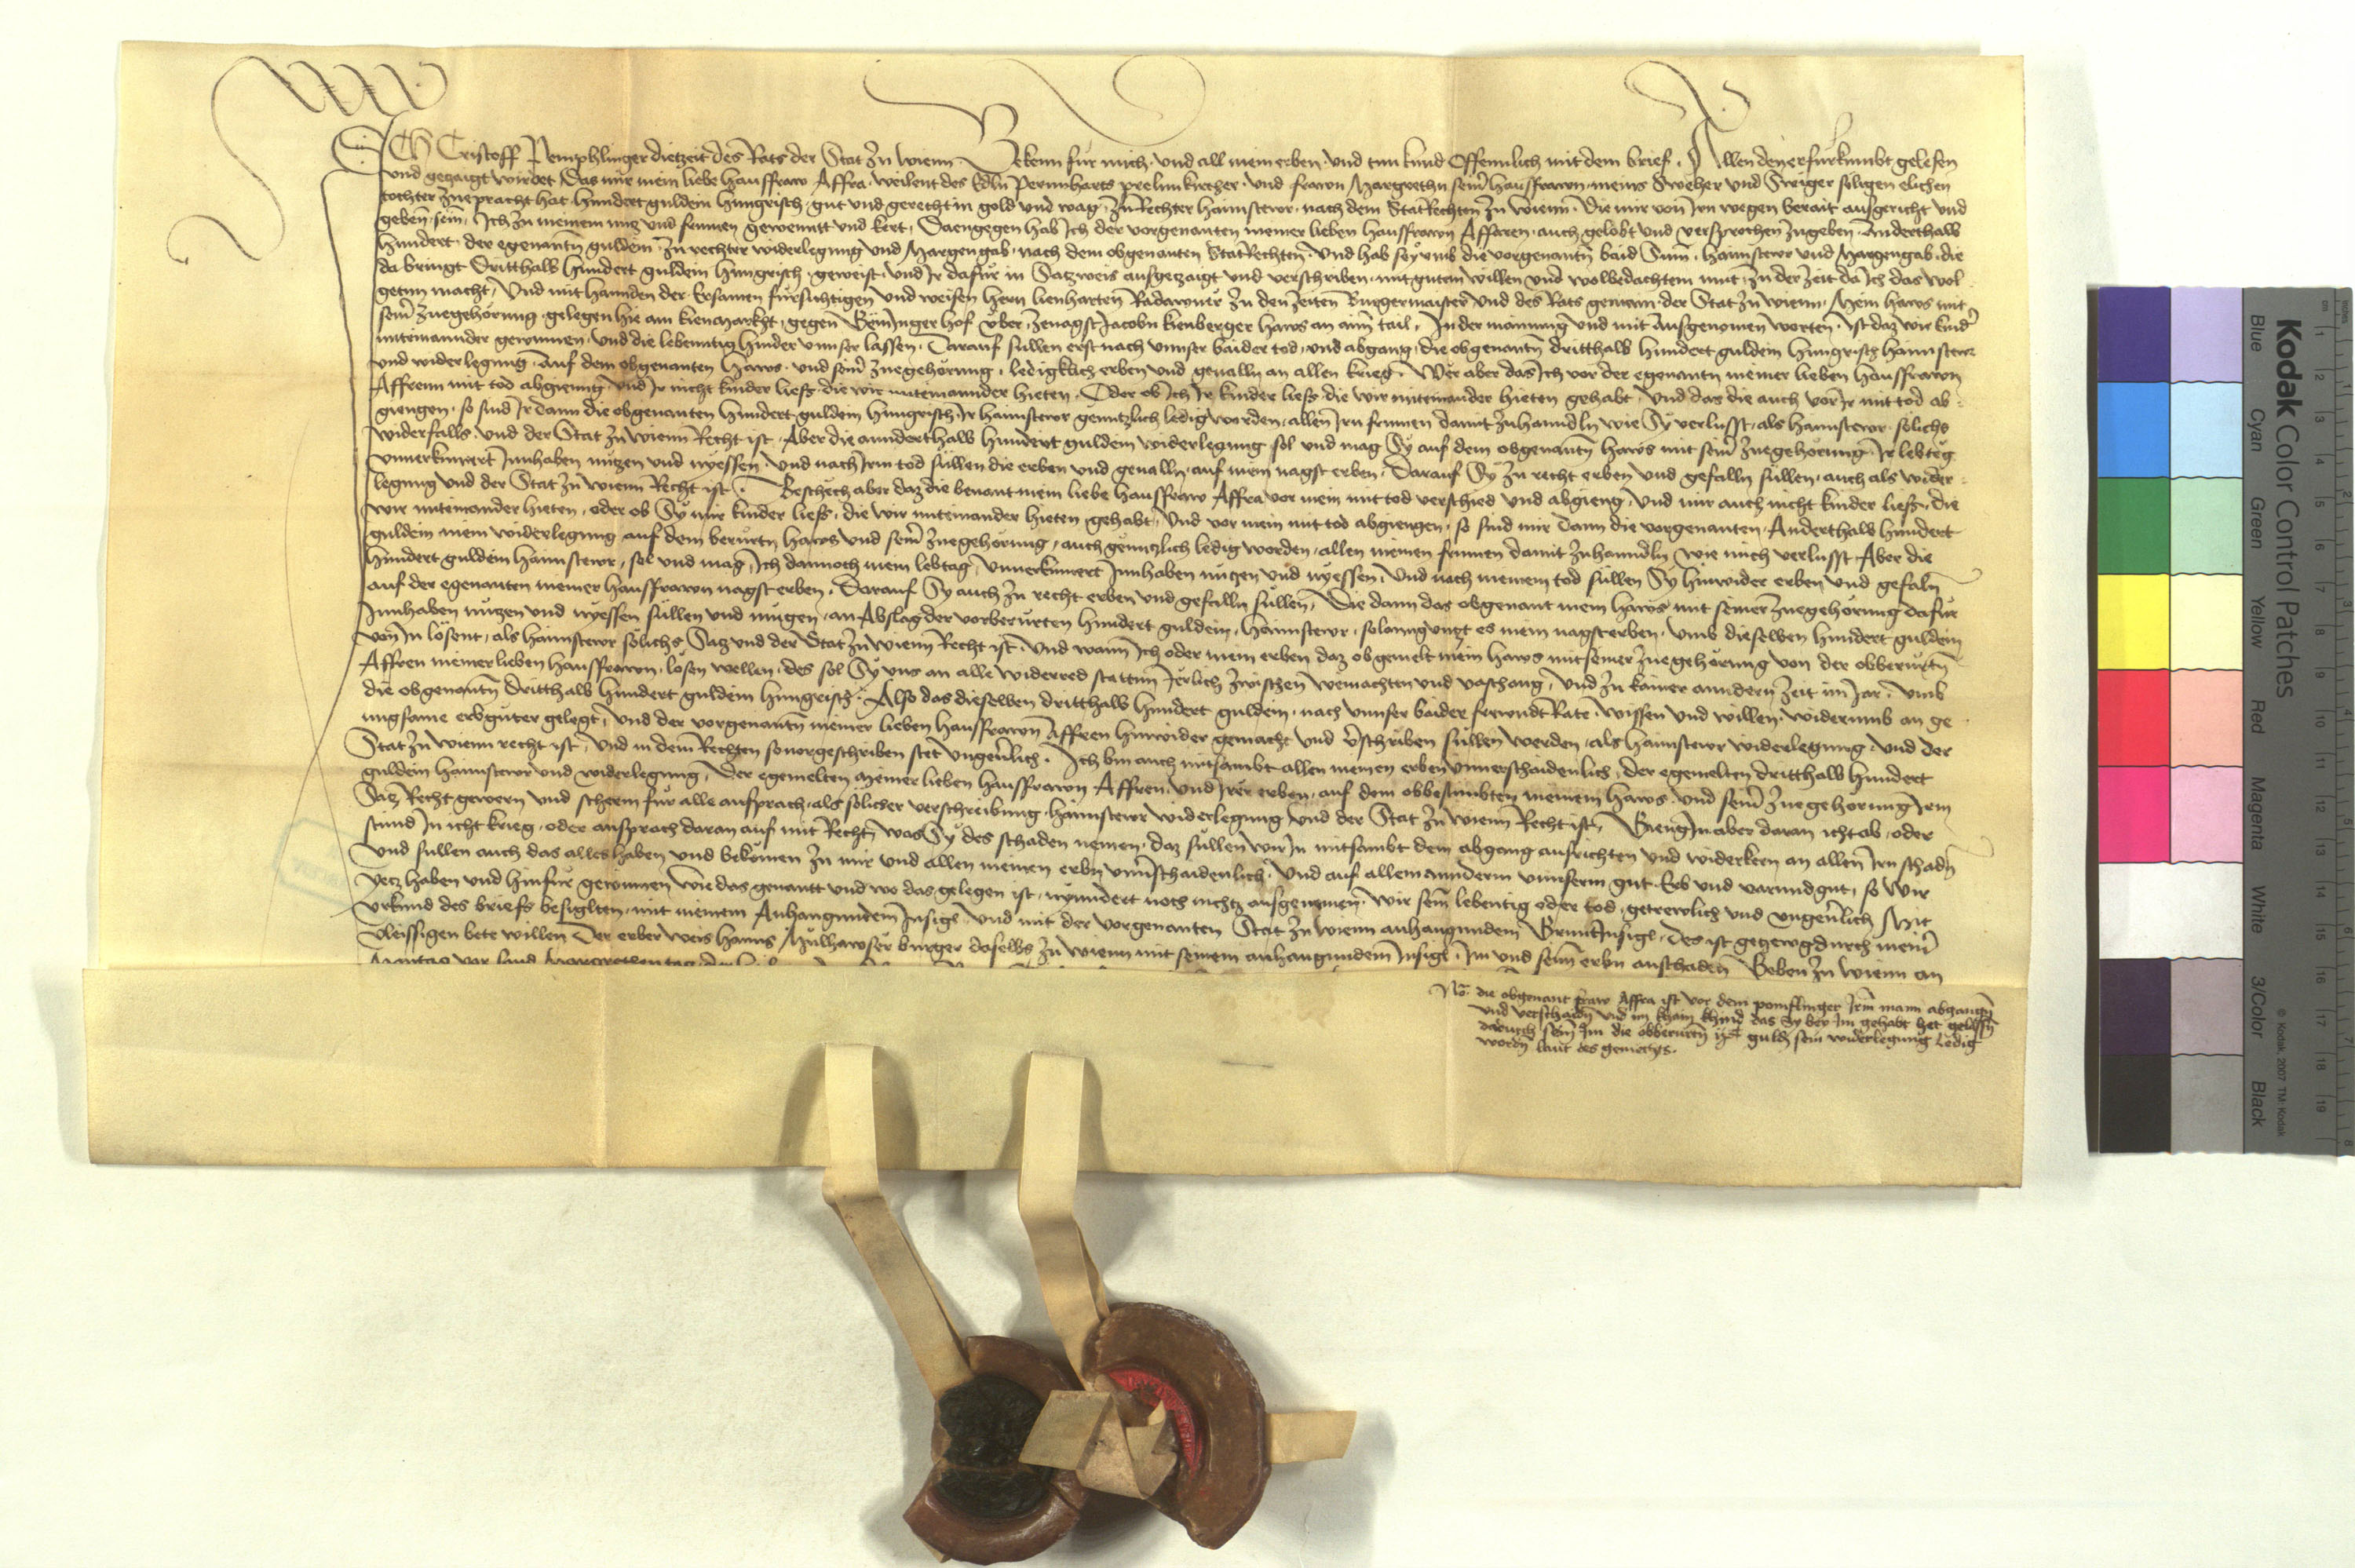 Ich Cristoff Pemphlinger dietzeit des Rats der Stat zu wienn Bekenn für mich und all mein erben und tun kund Offennlich mit dem brief Allen den er fürkumbt gelesen
und gezaigt wirdet Das mir mein liebe hausfraw Affra weilent des Edln Pernnharts prelunkircher und frawn Margrethn seiner hausfrawn meins Sweher und Swiger seligen elichen
tochter zuepracht hat hundert guldein hungrisch gut und gerecht in gold und wag zu Rechter haimstewr nach dem StatRechten zu wienn Die mir von Irn wegen berait ausgericht und
geben sein Ich zu meinem nuz und frumen gewenntt und kert Daengegen hab Ich der vorgenanten meiner lieben hausfrawn Affren auch gelobt und versprochen zugeben Anderthalb
hundert der egenantn guldein zu rechter widerlegung und Margengab nach dem obgenanten StatRechten Und hab sy umb die vorgenantn baid Sum haimstewr und Margengab die
da bringt Dritthalb hundert guldein hungrisch geweist und Ir dafür in Satzweis ausgezaigt und verschriben mit gutem willen und wolbedachtem mut zu der Zeit da ich das wol
getun macht Und mit hannden der Ersamen fürsichtigen und weisen herrn lienharten Radawner zu den Zeiten Burgermaister und des Rats gemain der Stat zu wienn Mein haws mit
seiner zuegehorung gelegen hie am kienmarkht gegen Hof über zenagst Jacobn kienberger haws an aim tail In der mainung und mit ausgenomen worten Ist daz wir kinder
miteinannder gewinnen und die lebenntig hinder unnser lassen Darauf sullen erst nach unnser baider tod und abgang die obgenantn dritthalb hundert guldein hungrisch haimstewr
und widerlegung Auf dem obgenanten haws und seiner zuegehorung ledigklich erben und geuallen an allen krieg Wer aber das Ich vor der egenantn meiner lieben hausfrawn
Affrenn mit tod abgieng und Ir nicht kinder liess die wir miteinannder hieten Oder ob Ich Ir kinder liess die wir miteinander hieten gehabt und das die auch vor Ir mit tod ab
giengen so sind Ir dann die obgenanten hundert guldein hungrisch Ir haimstewr genntzlich ledig worden allen Irn frumen damit zuhanndln wie Sy verlusst als haimstewr solichs
widerfalls und der Stat zu wienn Recht ist Aber die annderthalb hundert guldein widerlegung sol und mag Sy auf dem obgenanten haws mit seiner zuegehorung Ir lebteg
unuerkumert Innhaben nutzen und nyessen Und nach Irm tod sullen die erben und geualln auf mein nagst erben Darauf Sy zu recht erben und gefalln sullen auch als wider
legung und der Stat zu wienn Recht ist Beschech aber daz die benant mein liebe hausfraw Affra vor mein mit tod verschied und abgieng Und mir auch nicht kinder liess die
wir miteinander hieten oder ob Sy mir kinder liess die wir miteinander hieten gehabt Und vor mein mit tod abgiengen so sind mir dann die vorgenanten Anderthalb hundert
guldein mein widerlegung auf dem berurtn haws und seiner zuegehorung auch genntzlich ledig worden allen meinen frumen damit zuhanndln wie mich verlusst Aber die
hundert guldein haimstewr sol und mag Ich dannoch mein lebtag unuerkumert Innhaben nutzen und nyessen Und nach meinem tod sullen Sy hinwider erben und gefaln
auf der egenanten meiner hausfrawn nagst erben Darauf Sy auch zu recht erben und gefalln sullen Die dann das obgenant mein haws mit seiner zuegehorung dafur
Innhaben nutzen und nyessen sullen und mugen an Abslag der vorberurten hundert guldein haimstewr solanng untzt es mein nagst erben umb dieselben hundert guldein
von In losent als haimstewr solichs Satz und der Stat zu wienn Recht ist Und wann Ich oder mein erben daz obgemelt mein haws mit seiner zuegehorung von der obberurtn
Affren meiner lieben hausfrawn losen wellen des sol Sy uns an alle widerred stattun Jerlich zwischen weinachten und vaschang und zu kainer anndern Zeit im Jar umb
die obgenantn dritthalb hundert guldein hungrisch Also das dieselben dritthalb hundert guldein nach unnser baider frewndt Rate wissen und willen widerumb an ge
ungsame erbguter gelegt und der vorgenantn meiner lieben hausfrawn Affren hinwider gemacht und verschriben sullen werden als haimstewr widerlegung und der
Stat zu wienn recht ist und in dem Rechten so vorgeschriben stet ungeuerlich Ich bin auch mitsambt allen meinen erben unuerschaidenlich der egemelten dritthalb hundert
guldein haimstewr und widerlegung Der egemelten meiner lieben hausfrawn Affren und Irer erben auf dem obbestimbten meinem haws und seiner zuegehorung Irm
Satz Recht gewern und scherm für alle ansprach als solicher verschreibung haimstewr widerlegung und der Stat zu wienn Recht ist Gieng In aber daran icht ab oder
stund In icht krieg oder ansprach daran auf mit Recht was Sy des schaden nemen daz sullen wir In mitsambt dem abgang ausrichten und widerkern an allen Irn schadn
Und sullen auch das alles haben und bekomen zu mir und allen meinen erbn unuerschaidenlich Und auf allem annderm unnserm gut Erb und varundgut so wir
yetz haben und hinfür gewinnen wie das genantt und wo das gelegen ist nynndert noch nichtz ausgenomen wir sein lebentig oder tod getrewlich und ungeuerlich Mit
urkund des briefs besiglten mit meinem Anhangundem Insigl Und mit der vorgenanten Stat zu wienn anhangundem GruntInsigl Des ist getzewg durch meiner
vleissigen bete willen Der erber weis Hanns Mulhawser burger daselbs zu wienn mit seinem anhangundem Insigl Im und sein erbn anschaden Geben zu wienn an
Montag vor sand Margrethen tag
No die obgenant fraw Affra ist vor dem pemflinger Irm mann abgangn
und verschaidn und im khain khind das Sy bey Im gehabt het gelassn
dadurch sein Im die obberurtn guldn sein widerlegung ledig
wordn laut des gemechts
Kodak Color Control Patches
© Kodak, 2007 TM: Kodak
Blue Cyan Green Yellow Red Magenta White 3/Color Black